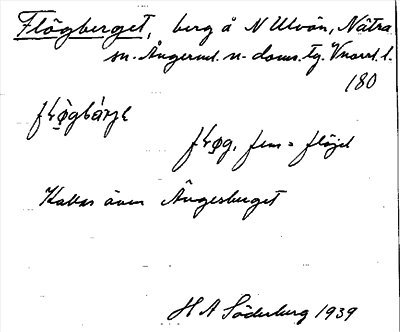 Flögberget, berg å N Ulvön, Nätra
sn. Ångerml. n. doms. tg. Vnorrl. l.
180
fem = flöjel
Kallas även Ängesberget
H A Söderberg 1939